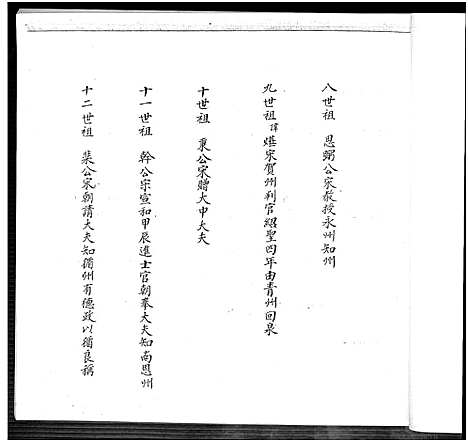 八世祖　思弼公宋教授永州知州
九世祖諱媅宋賀州判官紹聖四年由青州回泉
十世祖　秉公宋贈大中大夫
十一世祖　幹公宋宣和甲辰進士官朝奉大夫知南恩州
十二世祖　棐公宋朝請大夫知循州有德政以循良稱